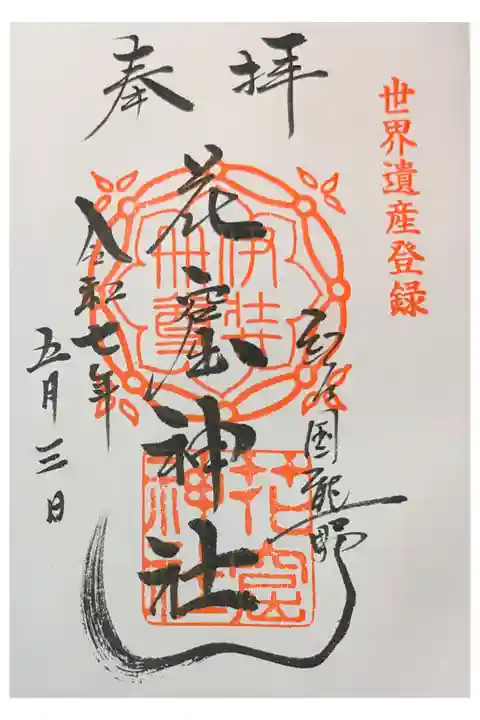 世界遺産登録
奉拝
紀伊国熊野
花窟神社
伊弉冊尊
花窟神社
令和七年
五月三日